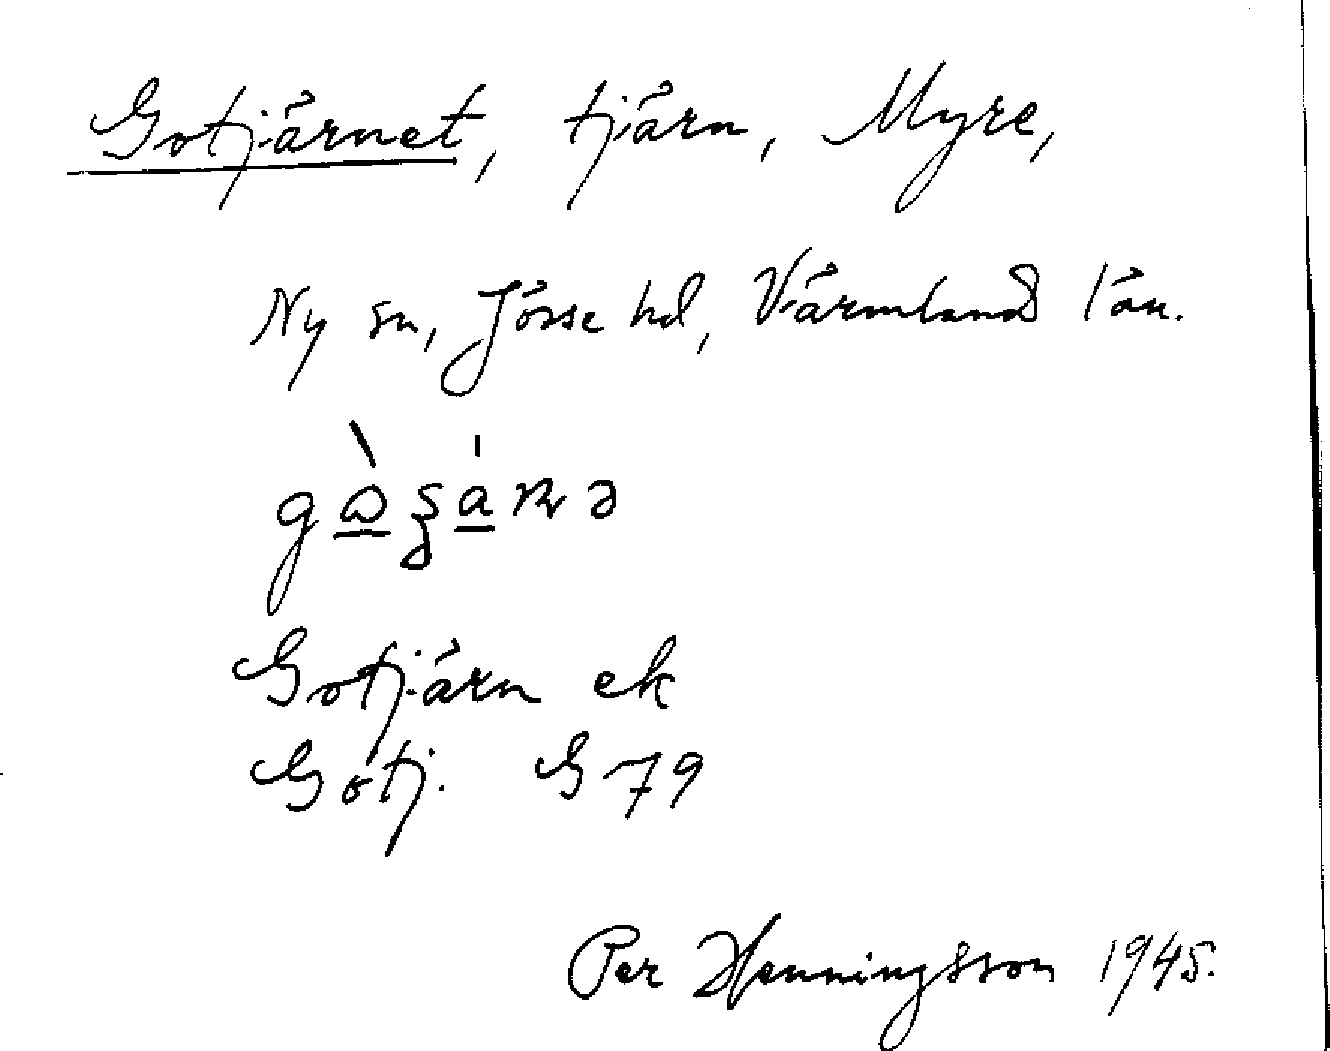 Gotjärnet, tjärn, Myre,
Ny sn, Jösse hd, Värmlands län.
Gotjärn ek
Gotj. G 79
Per Henningsson 1945.